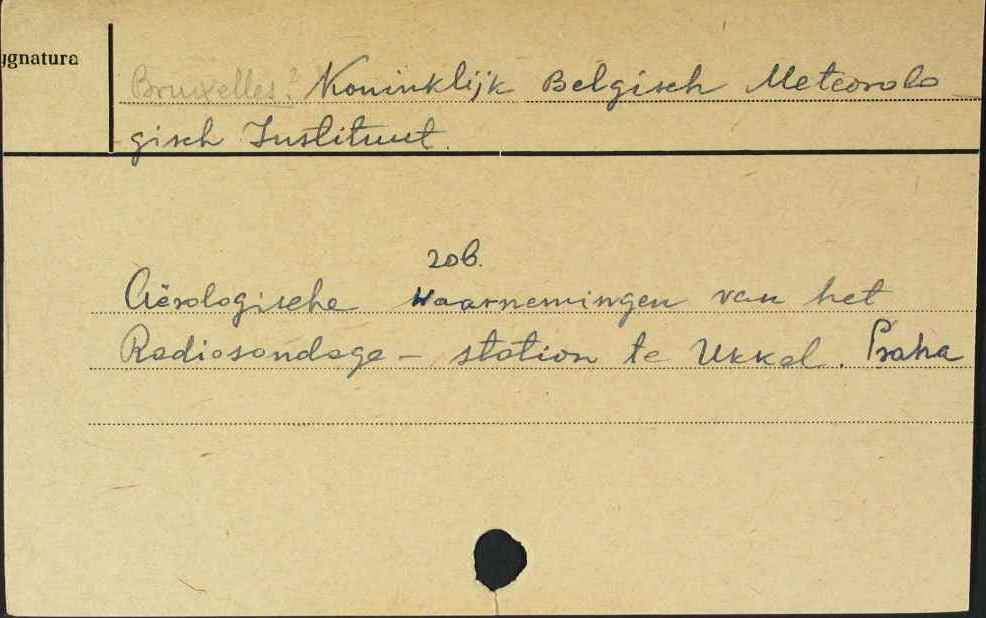 ygnatura
Bruxelles? Koninklijk Belgisch Meteorolo
gisch Instituut.
20b.
Aërologische Waarnemingen van het
Radiosondage - station te Ukkel. Praha